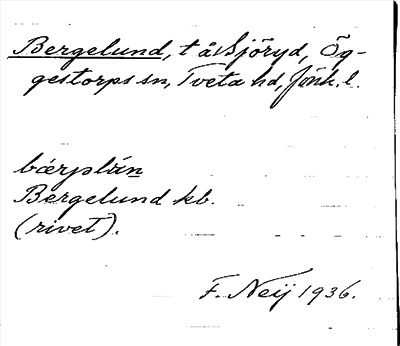 Bergelund, t å Sjöryd, Ög-
gestorps sn, Tveta hd, Jönk. l.
bærjəlún
Bergelund kb.
(rivet).
F. Neij 1936.